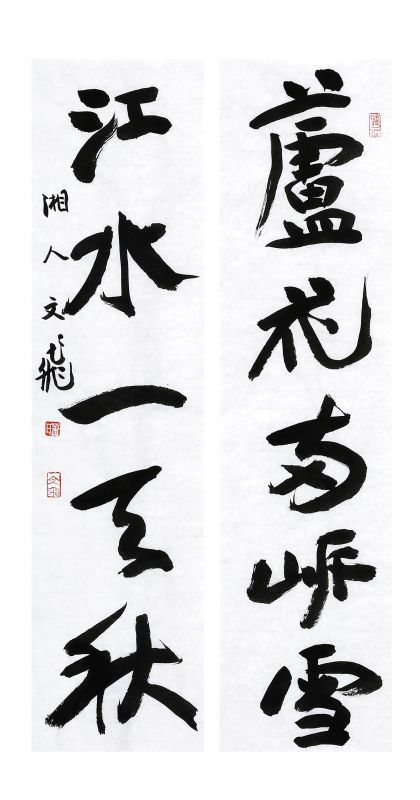 蘆花両岍雪
江水一天秋
湘人文飛